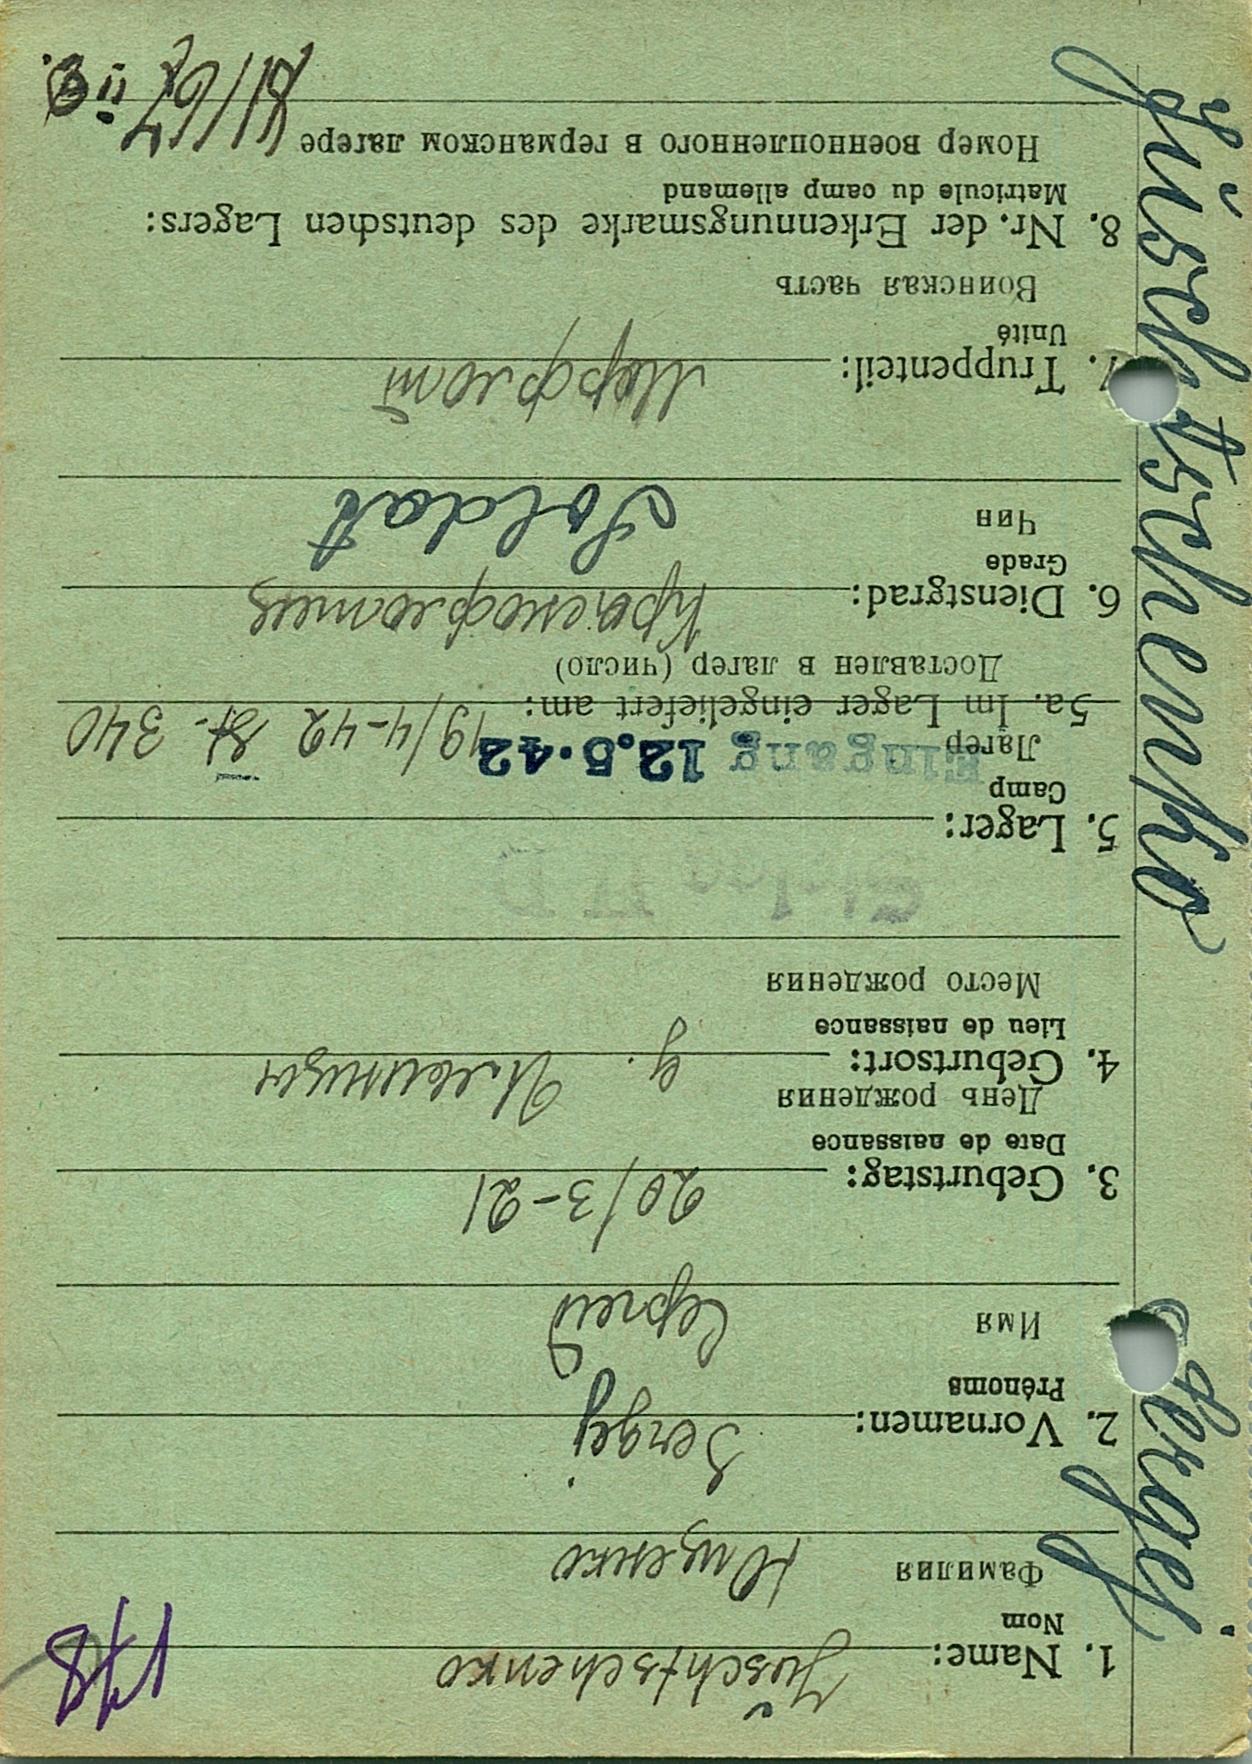 178
1. Name: Jüschtschenko
Nom
Фамилия Ющенко
2. Vornamen: Sergej
Prénoms
Имя Сергей
3. Geburtstag: 20/3-21
Date de naissance
День рождения
4. Geburtsort: г. Ильинцы
Lieu de naissance
Место рождения
5. Lager:
Camp
Лагерь
Eingang 12.5.42
5a. Im Lager eingeliefert am: 19/4-42 St. 340
Доставлен в лагер (число)
6. Dienstgrad: Краснофлотец
Grade
Чин Soldat
7. Truppenteil: Морфлот
Unité
Воинская часть
8. Nr. der Erkennungsmarke des deutschen Lagers:
Matricule du camp allemand
Номер военнопленного в германском лагере
Jüschtschenko Sergej